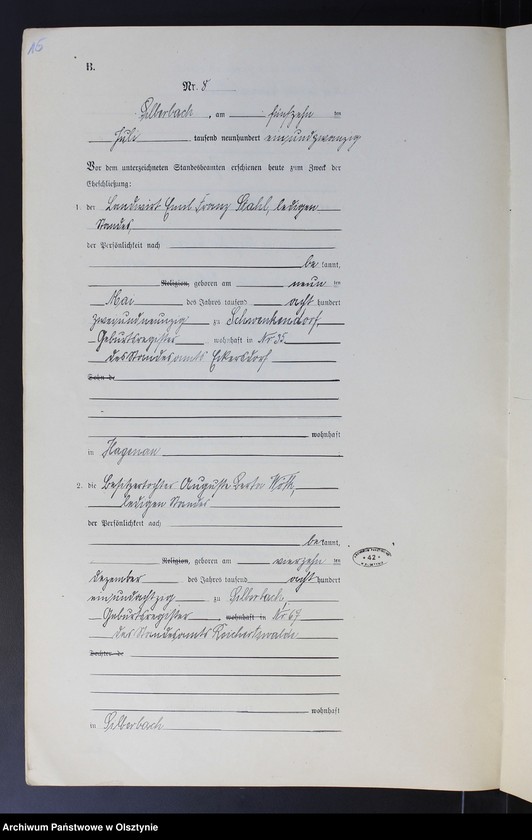 15
B.
Nr. 8
Silberbach, am fünfzehn ten
Juli tausend neunhundert einundzwanzig
Vor dem unterzeichneten Standesbeamten erschienen heute zum Zweck der
Eheschließung:
1. der Landwirt Emil Franz Stahl, ledigen
Standes,
der Persönlichkeit nach
be kannt,
Religion, geboren am neun ten
Mai des Jahres tausend acht hundert
zweiundneunzig zu Schwenkendorf,
Geburtsregister wohnhaft in Nr 35
des Standesamts Eckersdorf
Sohn de
wohnhaft
in Hagenau
2. die Besitzertochter Auguste Berta
ledigen Standes
der Persönlichkeit nach
be kannt,
Religion, geboren am vierzehn ten
Dezember des Jahres tausend acht hundert
einundachtzig zu Silberbach,
Geburtsregister wohnhaft in Nr 67
des Standesamts Reichertswalde
Tochter de
wohnhaft
in Silberbach
* 42 *
Archiwum Państwowe w Olsztynie